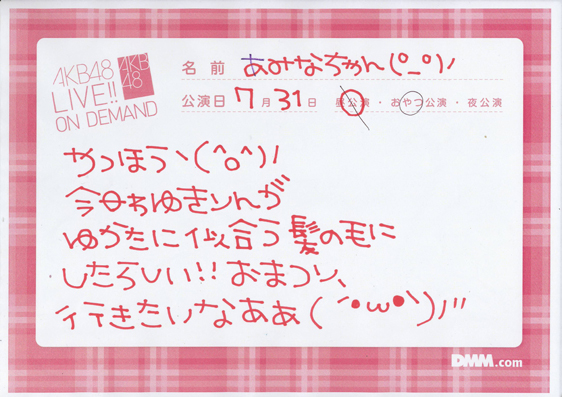 AKB48
LIVE!!
ON DEMAND
AKB
48
名前 あみなちゃん(°_°)ﾉ
公演日 7月31日 昼公演・おやつ公演・夜公演
やっほうヽ(^o^)ﾉ
今日わゆきりんが
ゆかたに似合う髪の毛に
したらしい!!おまつり、
行きたいなああ(´•ω•`)ﾉ''
DMM.com